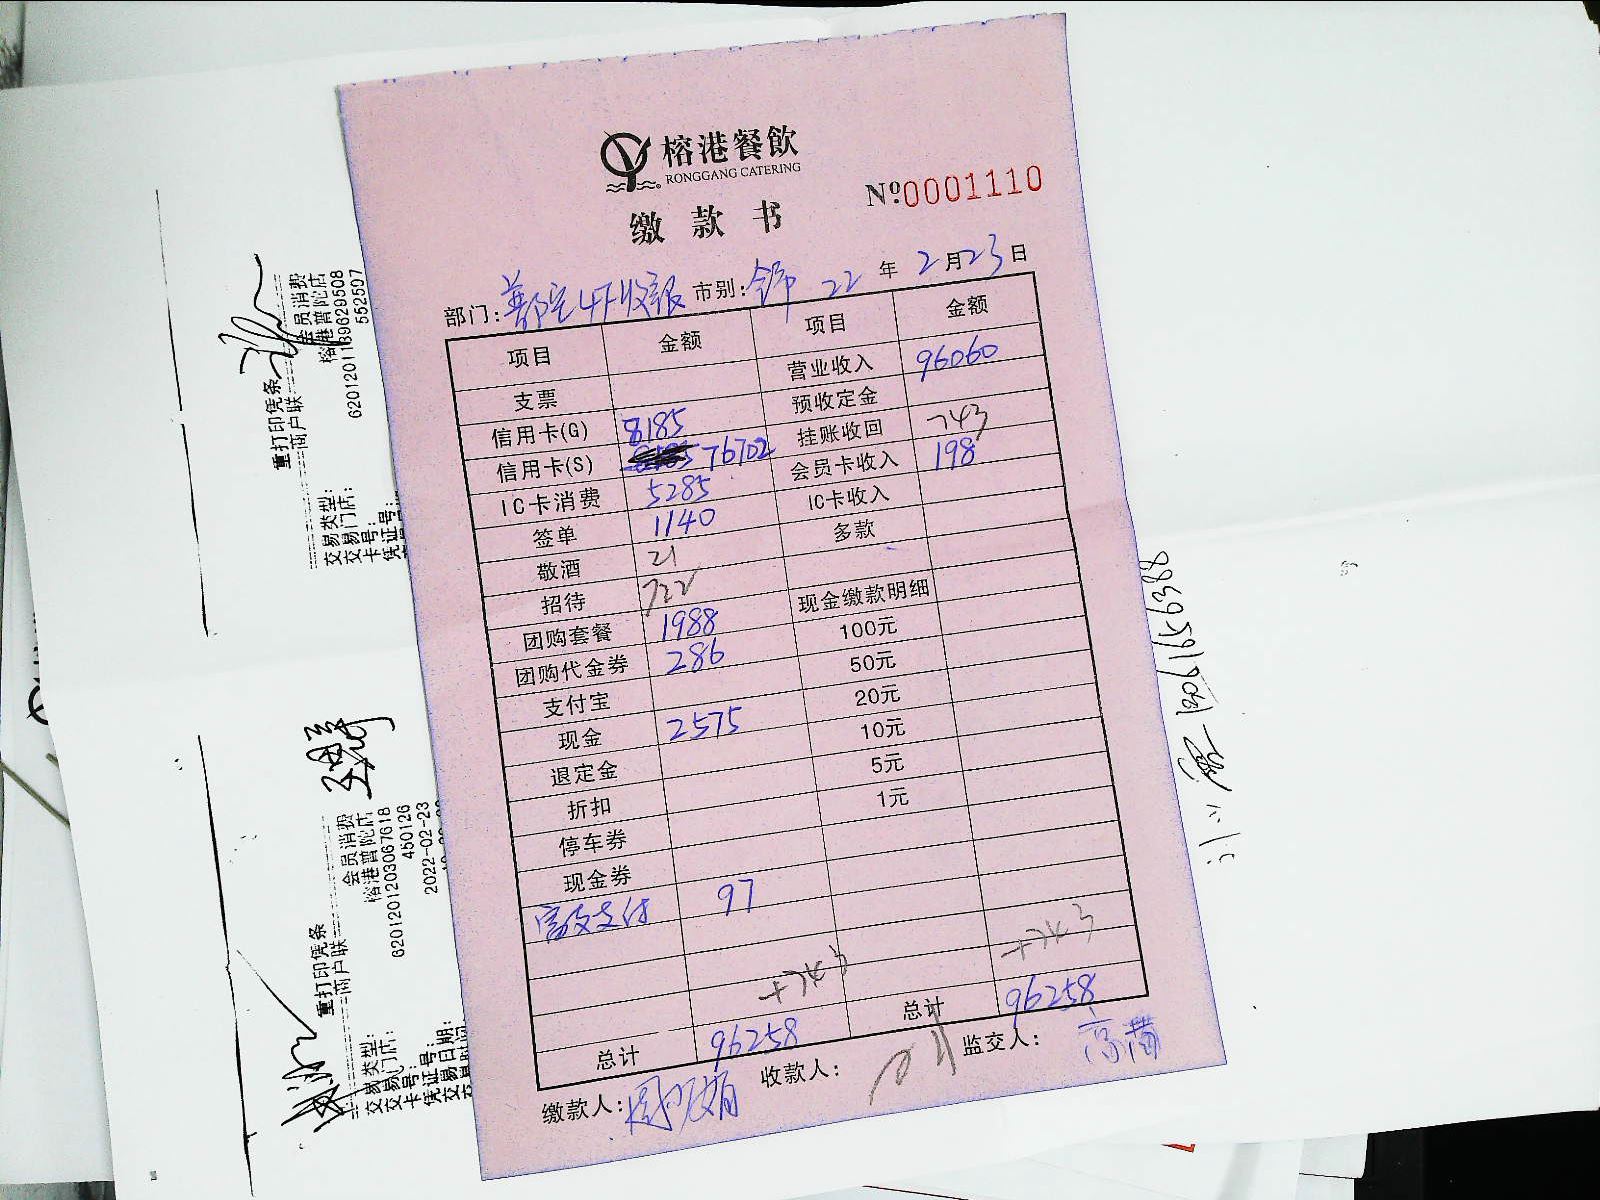 榕港餐飲
RONGGANG CATERING
№0001110
缴款书
部门: 市别: 22年2月23日
项目 金额 项目 金额
支票 营业收入 96060
信用卡(G) 8185 预收定金
信用卡(S) 76702 挂账收回 743
IC卡消费 5285 会员卡收入 198
签单 1140 IC卡收入
敬酒 21 多款
招待 722
团购套餐 1988 现金缴款明细
团购代金券 286 100元
支付宝 50元
现金 2575 20元
退定金 10元
折扣 5元
停车券 1元
现金券
支付 97
+743 +743
总计 96258 总计 96258
缴款人: 收款人: 监交人:
重打印凭条
商户联
交易类型: 会员消费
交易门店: 榕港普陀店
卡号: 6201201189629508
凭证号: 552507
重打印凭条
商户联
交易类型: 会员消费
交易门店: 榕港普陀店
卡号: 6201201203067618
凭证号: 450126
交易日期: 2022-02-23
交易时间: